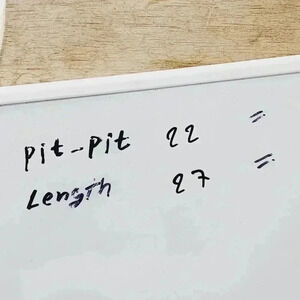 pit-pit 22 "
Length 27 "